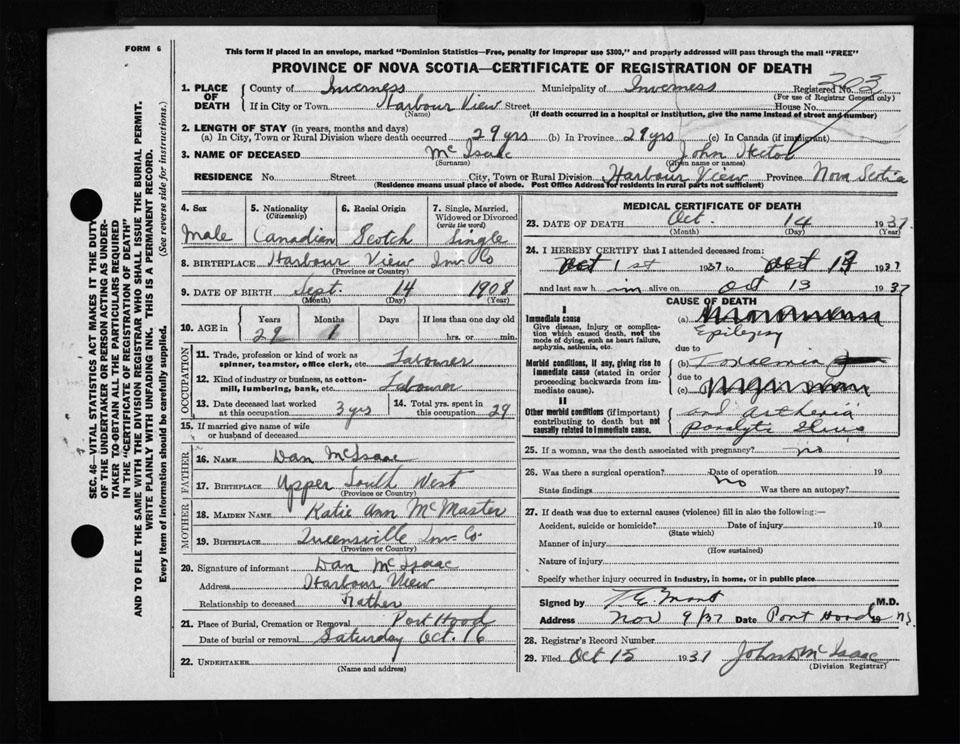 FORM 6
This form if placed in an envelope, marked "Dominion Statistics—Free, penalty for improper use $300," and properly addressed will pass through the mail "FREE"
PROVINCE OF NOVA SCOTIA—CERTIFICATE OF REGISTRATION OF DEATH
203
1. PLACE OF DEATH County of Inverness Municipality of Inverness Registered No.
(For use of Registrar General only)
If in City or Town Harbour View Street House No.
(Name) (If death occurred in a hospital or institution, give the name instead of street and number)
2. LENGTH OF STAY (in years, months and days)
(a) In City, Town or Rural Division where death occurred 29 yrs (b) In Province 29 yrs (c) In Canada (if immigrant)
3. NAME OF DECEASED Mc Isaac John Hector
(Surname) (Given name or names)
RESIDENCE No. Street City, Town or Rural Division Harbour View Province Nova Scotia
(Residence means usual place of abode. Post Office Address for residents in rural parts not sufficient)
4. Sex 5. Nationality (Citizenship) 6. Racial Origin 7. Single, Married, Widowed or Divorced (write the word)
Male Canadian Scotch Single
8. BIRTHPLACE Harbour View Inv. Co
(Province or Country)
9. DATE OF BIRTH Sept. 14 1908
(Month) (Day) (Year)
10. AGE in Years Months Days If less than one day old
29 1 hrs. or min.
OCCUPATION
11. Trade, profession or kind of work as spinner, teamster, office clerk, etc. Labourer
12. Kind of industry or business, as cotton-mill, lumbering, bank, etc. Labourer
13. Date deceased last worked at this occupation 3 yrs 14. Total yrs. spent in this occupation 29
15. If married give name of wife or husband of deceased
FATHER
16. NAME Dan McIsaac
17. BIRTHPLACE Upper South West
(Province or Country)
MOTHER
18. MAIDEN NAME Katie Ann McMaster
19. BIRTHPLACE Queensville Inv. Co.
(Province or Country)
20. Signature of informant Dan McIsaac
Address Harbour View
Relationship to deceased Father
21. Place of Burial, Cremation or Removal Port Hood
Date of burial or removal Saturday Oct. 16
22. UNDERTAKER
(Name and address)
MEDICAL CERTIFICATE OF DEATH
23. DATE OF DEATH Oct. 14 1937
(Month) (Day) (Year)
24. I HEREBY CERTIFY that I attended deceased from:
Oct 1st 1937 to Oct 13 1937
and last saw him alive on Oct 13 1937
CAUSE OF DEATH
I
Immediate cause (a)
Give disease, injury or complication which caused death, not the mode of dying, such as heart failure, asphyxia, asthenia, etc.
Epilepsy
due to
Morbid conditions, if any, giving rise to immediate cause (stated in order proceeding backwards from immediate cause). (b) Toxaemia
due to
(c)
II
Other morbid conditions (if important) contributing to death but not causally related to immediate cause.
and asthenia
25. If a woman, was the death associated with pregnancy? no
26. Was there a surgical operation? no Date of operation 19
State findings Was there an autopsy?
27. If death was due to external causes (violence) fill in also the following:—
Accident, suicide or homicide? Date of injury 19
(State which)
Manner of injury
(How sustained)
Nature of injury
Specify whether injury occurred in industry, in home, or in public place
Signed by M.D.
Address Nov 9/37 Date Port Hood 19 N.S.
28. Registrar's Record Number
29. Filed Oct 15 1937 John McIsaac
(Division Registrar)
SEC. 46—VITAL STATISTICS ACT MAKES IT THE DUTY
OF THE UNDERTAKER OR PERSON ACTING AS UNDER-
TAKER TO OBTAIN ALL THE PARTICULARS REQUIRED
IN THE "CERTIFICATE OF REGISTRATION OF DEATH"
AND TO FILE THE SAME WITH THE DIVISION REGISTRAR WHO SHALL ISSUE THE BURIAL PERMIT.
WRITE PLAINLY WITH UNFADING INK. THIS IS A PERMANENT RECORD.
Every item of information should be carefully supplied. (See reverse side for instructions.)